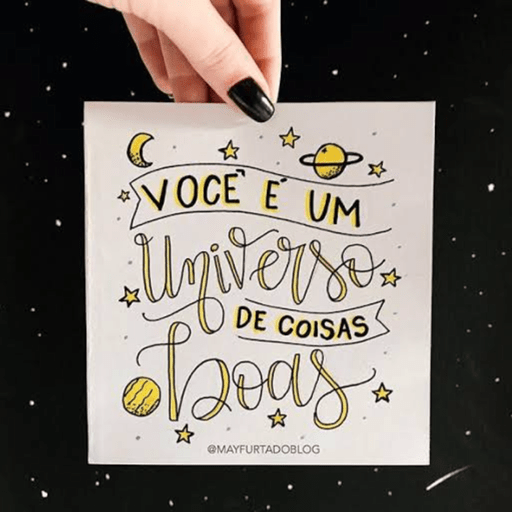 VOCÊ É UM
Universo
DE COISAS
boas
@MAYFURTADOBLOG